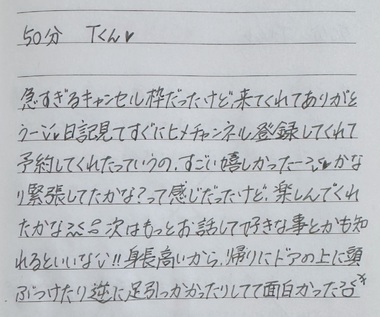 50分 Tくん♥
急すぎるキャンセル枠だったけど、来てくれてありがと
うーじ♥日記見てすぐにヒメチャンネル登録してくれて
予約してくれたっていうの、すごい嬉しかったーじ♥かな
り緊張してたかな?って感じだったけど、楽しんでくれ
たかな？次はもっとお話して好きな事とかも知
れるといいな!!身長高いから、帰りにドアの上に頭
ぶつけたり逆に足引っかかったりしてて面白かった